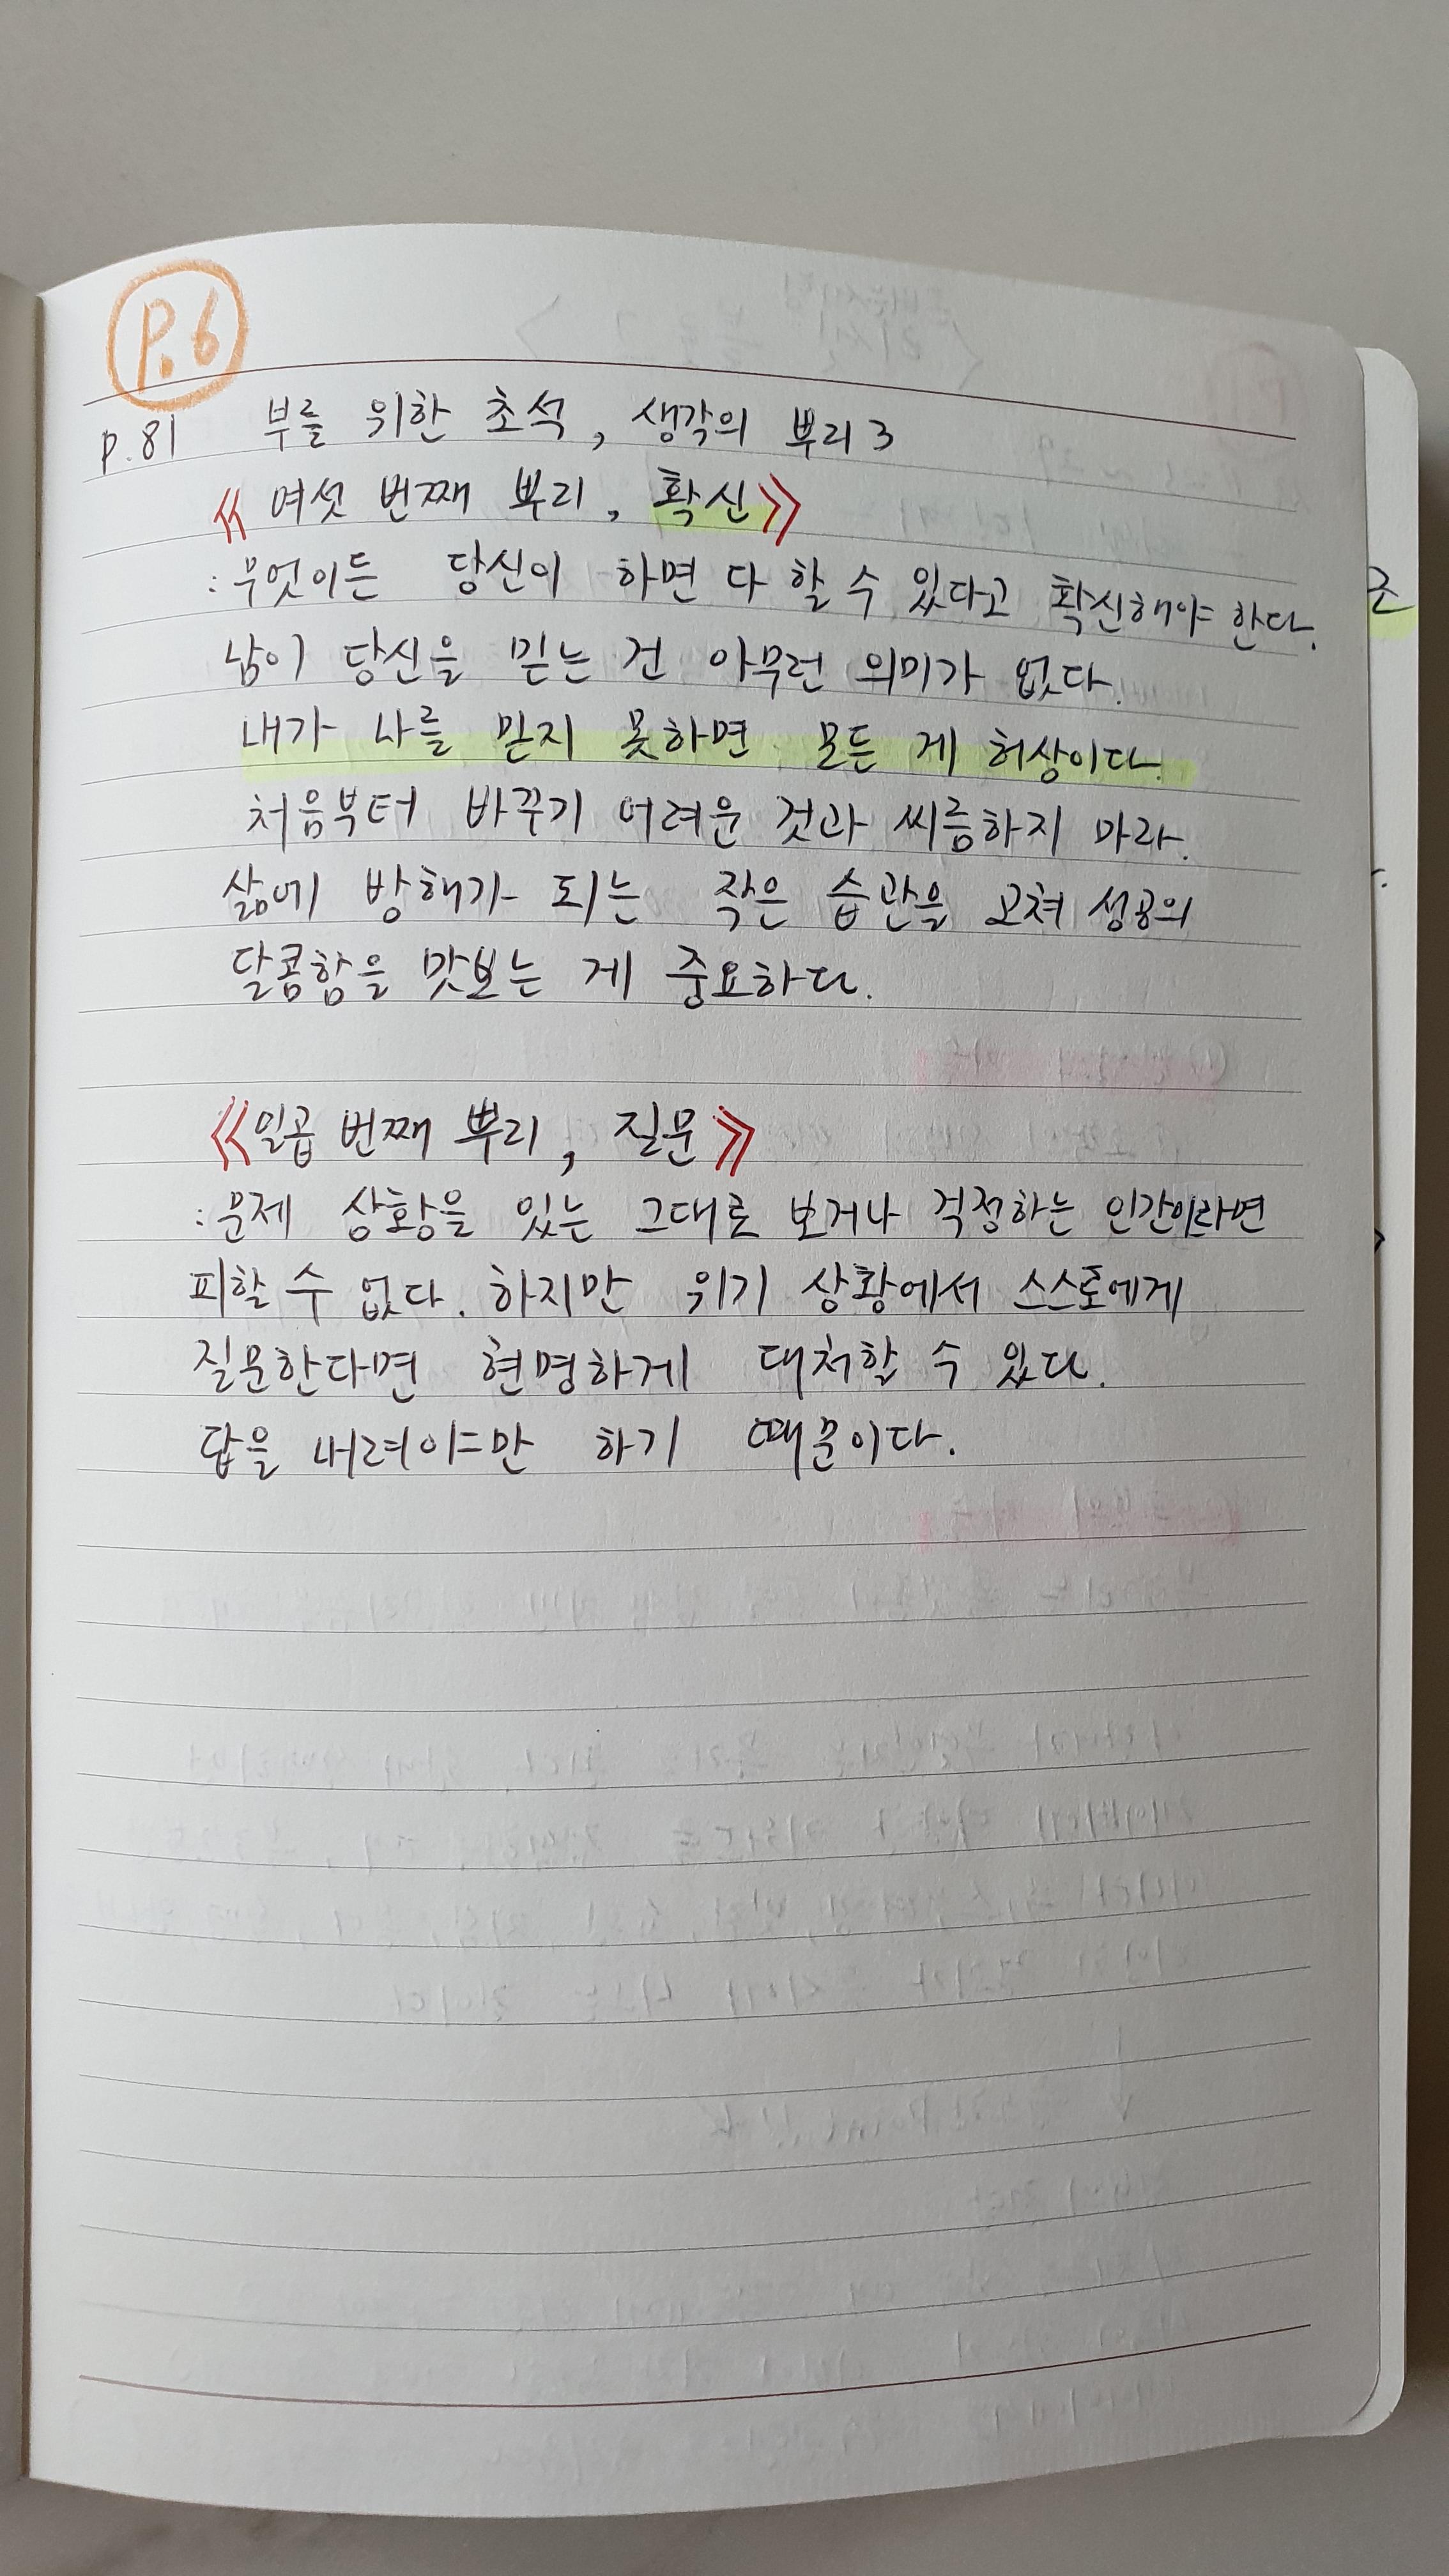 P.6
p.81 부를 위한 초석, 생각의 뿌리 3
《 여섯 번째 뿌리, 확신》
: 무엇이든 당신이 하면 다 할 수 있다고 확신해야 한다.
남이 당신을 믿는 건 아무런 의미가 없다.
내가 나를 믿지 못하면 모든 게 허상이다.
처음부터 바꾸기 어려운 것과 씨름하지 마라.
삶에 방해가 되는 작은 습관을 고쳐 성공의
달콤함을 맛보는 게 중요하다.
《일곱 번째 뿌리, 질문》
: 문제 상황을 있는 그대로 보거나 걱정하는 인간이라면
피할 수 없다. 하지만 위기 상황에서 스스로에게
질문한다면 현명하게 대처할 수 있다.
답을 내려야만 하기 때문이다.